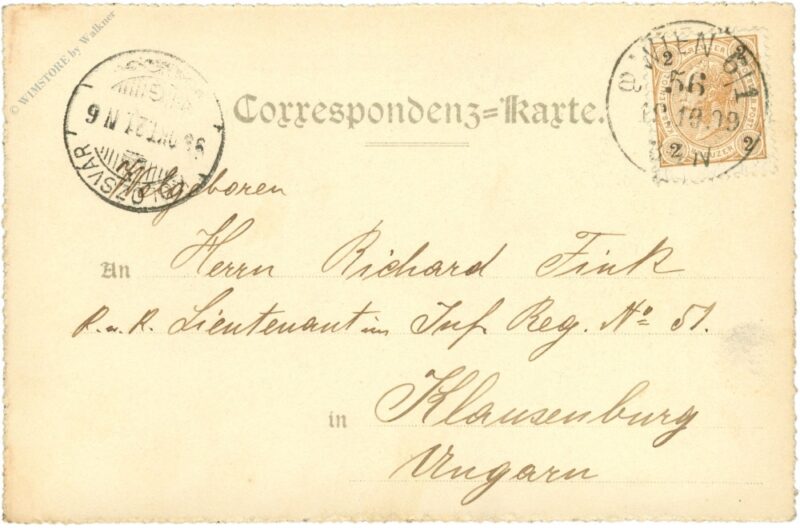 © WIMSTORE by Walkner
Correspondenz=Karte.
WIEN 6/1
56
2
2
2
KOLOZSVÁR
98 OKT. 21 N 6
Wohlgeboren
An Herrn Richard Fink
K. u. K. Lieutenant im Inf. Reg. No 51.
in Klausenburg
Ungarn